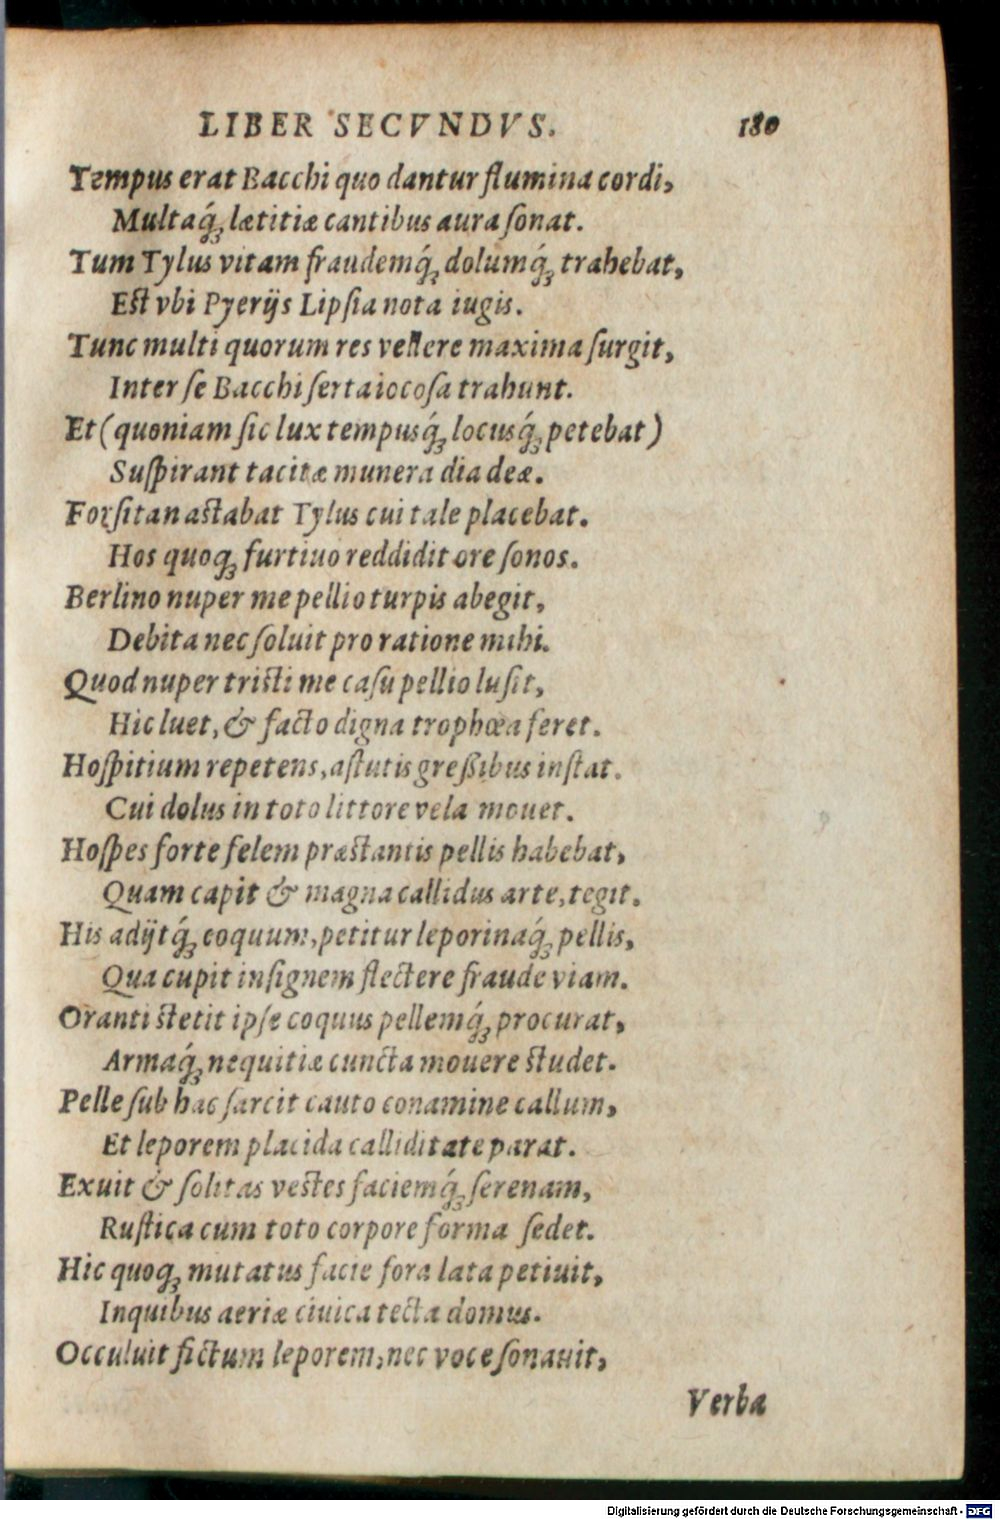 LIBER SECVNDVS. 180
Tempus erat Bacchi quo dantur flumina cordi,
Multaq́ꝫ lætitiæ cantibus aura ſonat.
Tum Tylus vitam fraudemq́ꝫ dolumq́ꝫ trahebat,
Eſt vbi Pyerijs Lipſia nota iugis.
Tunc multi quorum res vellere maxima ſurgit,
Inter ſe Bacchi ſerta iocoſa trahunt.
Et (quoniam ſic lux tempusq́ꝫ locusq́ꝫ petebat)
Suſpirant tacitæ munera dia deæ.
Forſitan aſtabat Tylus cui tale placebat.
Hos quoqꝫ furtiuo reddidit ore ſonos.
Berlino nuper me pellio turpis abegit,
Debita nec ſoluit pro ratione mihi.
Quod nuper triſti me caſu pellio luſit,
Hic luet, & facto digna trophœa feret.
Hoſpitium repetens, aſtutis greſſibus inſtat.
Cui dolus in toto littore vela mouet.
Hoſpes forte felem præſtantis pellis habebat,
Quam capit & magna callidus arte, tegit.
His adijtq́ꝫ coquum, petitur leporinaq́ꝫ pellis,
Qua cupit inſignem flectere fraude viam.
Oranti ſtetit ipſe coquus pellemq́ꝫ procurat,
Armaq́ꝫ nequitiæ cuncta mouere ſtudet.
Pelle ſub hac ſarcit cauto conamine callum,
Et leporem placida calliditate parat.
Exuit & ſolitas veſtes faciemq́ꝫ ſerenam,
Ruſtica cum toto corpore forma ſedet.
Hic quoqꝫ mutatus facie fora lata petiuit,
Inquibus aeriæ ciuica tecta domus.
Occuluit fictum leporem, nec voce ſonauit,
Verba
Digitalisierung gefördert durch die Deutsche Forschungsgemeinschaft - DFG